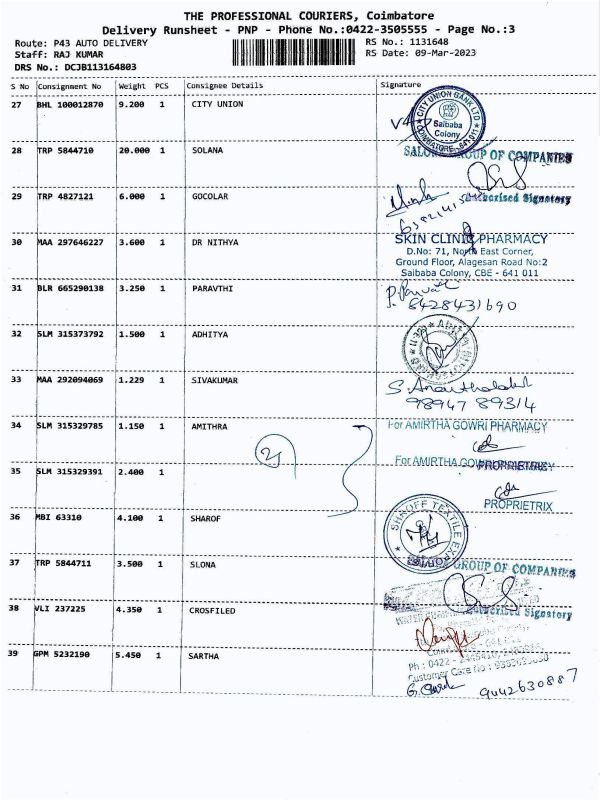 THE PROFESSIONAL COURIERS, Coimbatore
Delivery Runsheet - PNP - Phone No.:0422-3505555 - Page No.:3
Route: P43 AUTO DELIVERY
Staff: RAJ KUMAR
DRS No.: DCJB113164803
RS No.: 1131648
RS Date: 09-Mar-2023
S No Consignment No Weight PCS Consignee Details Signature
27 BHL 100012870 9.200 1 CITY UNION
CITY UNION BANK LTD
Saibaba
Colony
COIMBATORE - 641 011
28 TRP 5844710 20.000 1 SOLANA
GROUP OF COMPANIES
Authorised Signatory
29 TRP 4827121 6.000 1 GOCOLAR
30 MAA 297646227 3.600 1 DR NITHYA
SKIN CLINIC PHARMACY
D.No: 71, North East Corner,
Ground Floor, Alagesan Road No:2
Saibaba Colony, CBE - 641 011
31 BLR 665290138 3.250 1 PARAVTHI
8428431690
32 SLM 315373792 1.500 1 ADHITYA
33 MAA 292094069 1.229 1 SIVAKUMAR
98947 89314
34 SLM 315329785 1.150 1 AMITHRA
For AMIRTHA GOWRI PHARMACY
35 SLM 315329391 2.400 1
For AMIRTHA GOWRI
PROPRIETRIX
36 MBI 63310 4.100 1 SHAROF
SHROFF TEXTILE EXPORTS
37 TRP 5844711 3.500 1 SLONA
GROUP OF COMPANIES
Authorised Signatory
38 VLI 237225 4.350 1 CROSFILED
39 GPM 5232190 5.450 1 SARTHA
Customer Care No :
9442630887